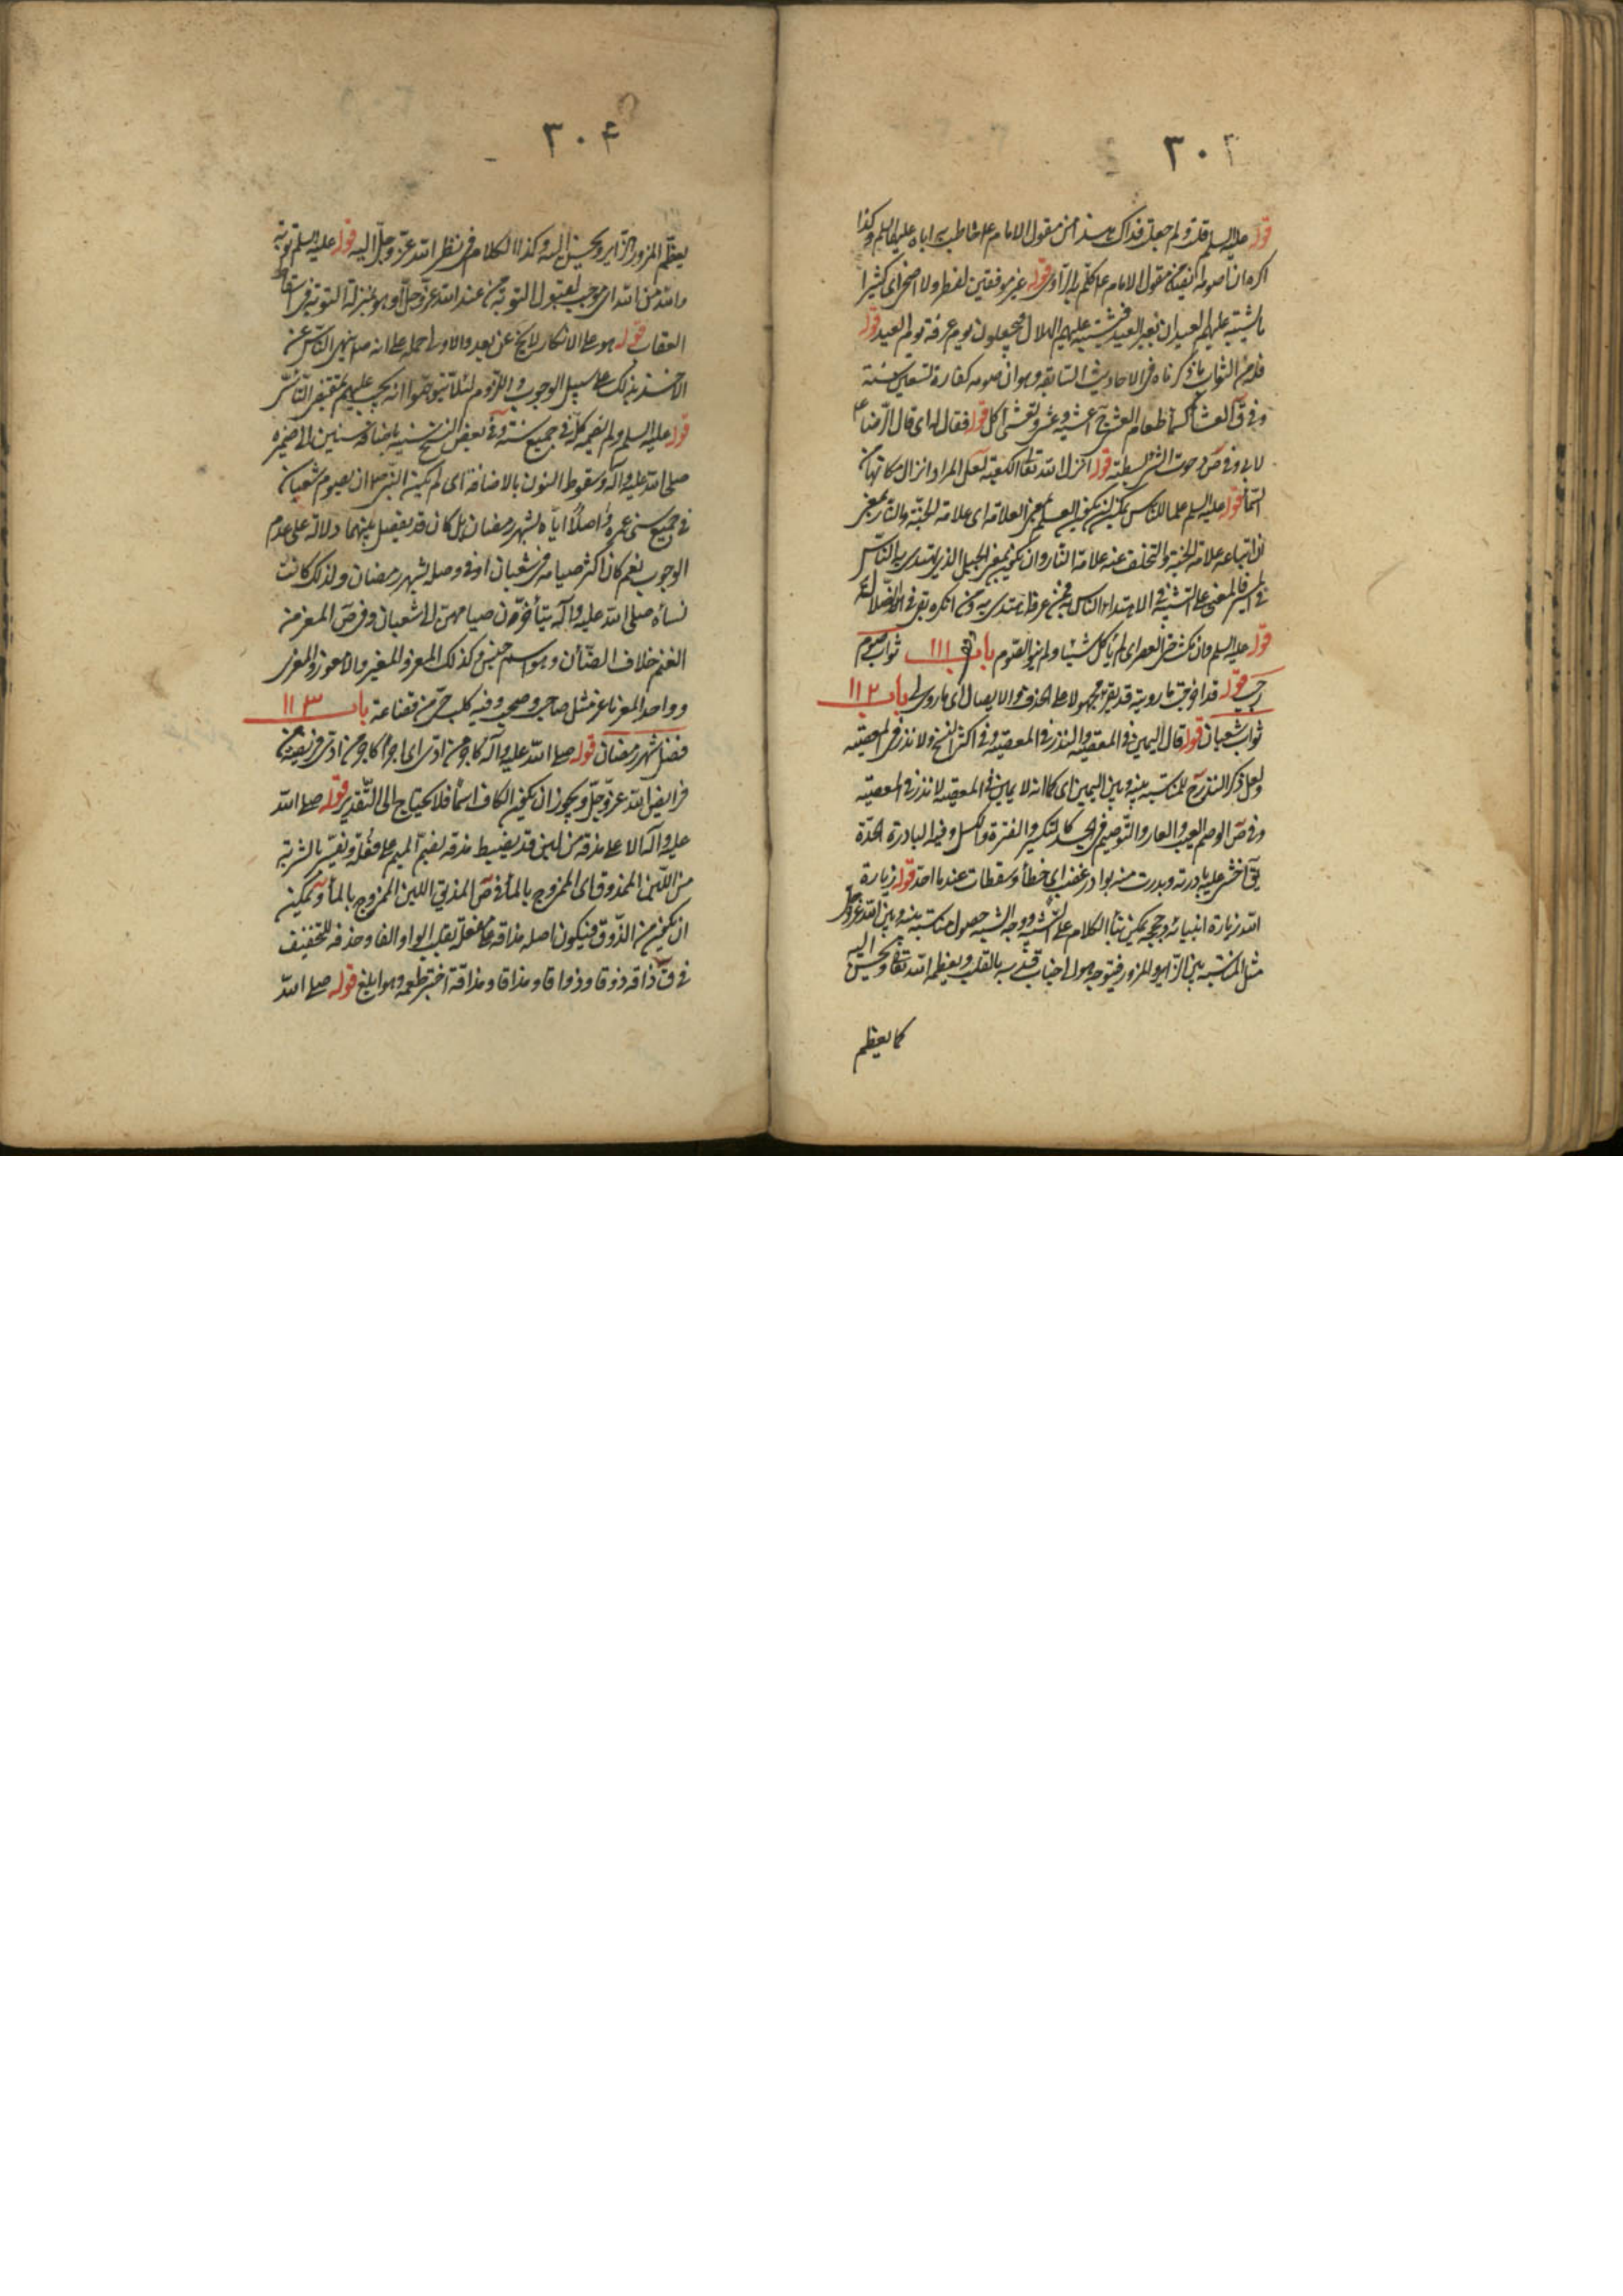 ٣٠٣
قوله عليه السلم قلت ولم جعلت فداك هذا من مقول الامام خاطب به اباه عليهما السلم وكذا
اكره ان اصومه ايضا من مقول الامام قوله غير موفقين لفطر ولا اضحى اى كثيرا
ما يشتبه عليهم العيد ان بغير العيد فيشتبه عليهم الهلال فيجعلون يوم عرفة يوم العيد قوله
فله من الثواب ما ذكرناه فى الاحاديث السابقة وهو ان صومه كفارة تسعين سنة
وفى ق العشا كسما طعام العشى وتعشى اكل قوله فقال له اى قال الرضا ع
لابى وفى ص دحوت الشى بسطته قوله انزل الله تعالى الكعبة لعل المراد انزال مكانها من
السما قوله عليه السلم علما للناس يمكن ان يكون العلم بمعنى العلامة اى علامة الجنة والنار بمعنى
ان اتباعه علامة الجنة والتخلف عنه علامة النار وان يكون بمعنى الجبل الذى يهتدى به الناس
فى السير فالمعنى على التشبيه فى الاهتداء الناس به فمن عرفه اهتدى به ومن انكره بقى فى الضلالة
قوله عليه السلم وان مكث حتى العصر اى لم ياكل شيئا ولم ينو الصوم باب ١١١ ثواب صوم
رجب قوله قد اوجبت ما رويته قد يقرء مجهولا على الحذف والايصال اى ما روى لى باب ١١٢
ثواب شعبان قوله قال اليمين فى المعصية والنذر فى المعصية وفى اكثر النسخ ولا نذر فى المعصية
ولعل ذكر النذر ح للمناسبة بينه وبين اليمين اى كما انه لا يمين فى المعصية لا نذر فى المعصية
وفى ص الوصم العيب والعار والتوصيم فى الجسد كالتكسير والفترة والكسل وفيه البادرة الحدة
يق اخشى عليه بادرته وبدرت منه بوادر غضب اى خطأ وسقطات عند ما احتد قوله زيارة
الله زيارة انبيائه وحججه يمكن بناء الكلام على التشبيه ووجه الشبه حصول مناسبة بينه وبين الله عز وجل
مثل المناسبة بين الزاير والمزور فيتوجه هو الى جناب قدسه بالقلب ويعظمه الله تعالى ويحسن اليه
كما يعظم
٣٠۴
يعظم المزور الزاير ويحسن اليه وكذا الكلام فى نظر الله عز وجل اليه قوله عليه السلم توبة
والله من الله اى موجب لقبول التوبة من عند الله عز وجل او هو بمنزلة التوبة فى اسقاط
العقاب قوله هو على الانكار لا يخ عن بعد والاولى حمله على انه صلى نهى الناس عن
الاخذ بذلك على سبيل الوجوب واللزوم لئلا يتوهموا انه يجب عليهم بمقتضى التأسى
قوله عليه السلم ولم اتصمه كل فى جميع سنة وفى بعض النسخ سنيه باضافة سنين الى ضميره
صلى الله عليه وآله وسقوط النون بالاضافة اى لم يكن النبى صلى ان يصوم شعبان
فى جميع سنى عمره واصلا اياه لشهر رمضان بل كان قد يفصل بينهما دلالة على عدم
الوجوب نعم كان اكثر صيامه فى شعبان او فى وصله لشهر رمضان ولذلك كانت
نساؤه صلى الله عليه وآله يتأخرن صيامهن الى شعبان وفى ص المعز من
الغنم خلاف الضأن وهو اسم جنس وكذلك المعز والمعيز والامعوز والمعزى
وواحد المعز ماعز مثل صاحب وصحب وفيه كلب حى من قضاعة باب ١١٣
فضل شهر رمضان قوله صلى الله عليه وآله كاجر من ادى اى اجرا كاجر من ادى فريضة من
فرايض الله عز وجل ويجوز ان يكون الكاف اسما فلا يحتاج الى التقدير قوله صلى الله
عليه وآله الا على مذقة من لبن قد يضبط مذقة بضم الميم على فعلة ويفسر بالشربة
من اللبن الممذوق اى الممزوج بالماء فى ص المذيق اللبن الممزوج بالماء ويمكن
ان يكون من الذوق فيكون اصله مذاقة على مفعلة بقلب الواو الفا وحذفه للتخفيف
فى ق ذاقه ذوقا وذواقا ومذاقا ومذاقة اختبر طعمه وهو ابلغ قوله صلى الله